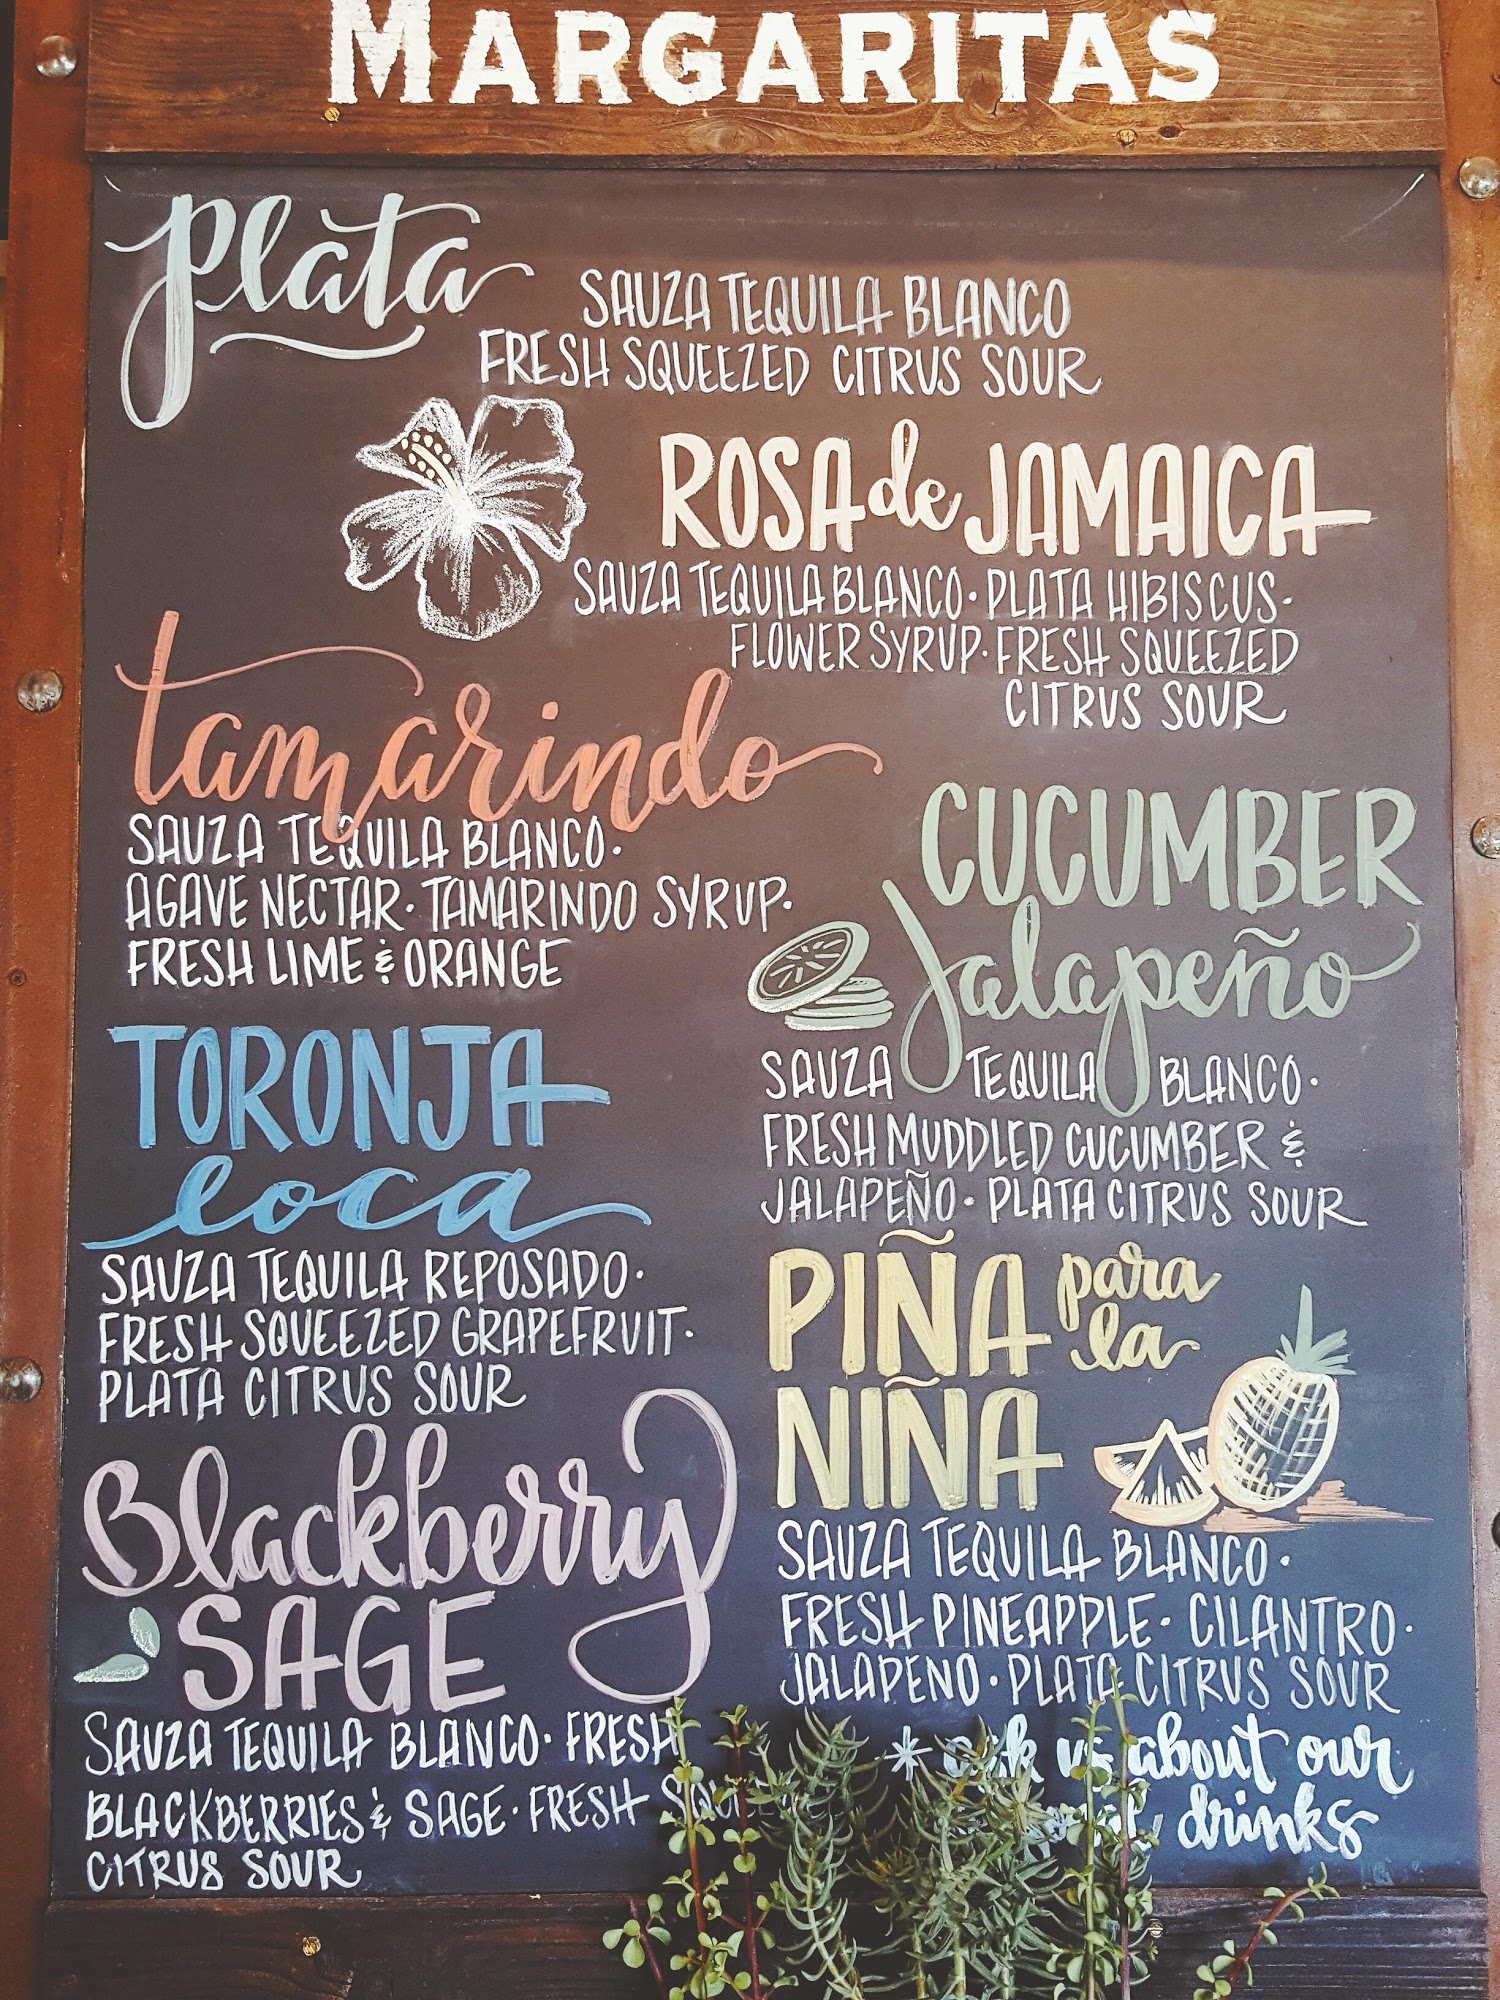 MARGARITAS
Plata
SAUZA TEQUILA BLANCO
FRESH SQUEEZED CITRUS SOUR
ROSA de JAMAICA
SAUZA TEQUILA BLANCO · PLATA HIBISCUS ·
FLOWER SYRUP · FRESH SQUEEZED
CITRUS SOUR
tamarindo
SAUZA TEQUILA BLANCO ·
AGAVE NECTAR · TAMARINDO SYRUP ·
FRESH LIME & ORANGE
CUCUMBER
Jalapeño
SAUZA TEQUILA BLANCO ·
FRESH MUDDLED CUCUMBER &
JALAPEÑO · PLATA CITRUS SOUR
TORONJA
loca
SAUZA TEQUILA REPOSADO ·
FRESH SQUEEZED GRAPEFRUIT ·
PLATA CITRUS SOUR
PIÑA para
la
NIÑA
SAUZA TEQUILA BLANCO ·
FRESH PINEAPPLE · CILANTRO ·
JALAPENO · PLATA CITRUS SOUR
Blackberry
SAGE
SAUZA TEQUILA BLANCO · FRESH
BLACKBERRIES & SAGE · FRESH
CITRUS SOUR
* ask us about our
drinks